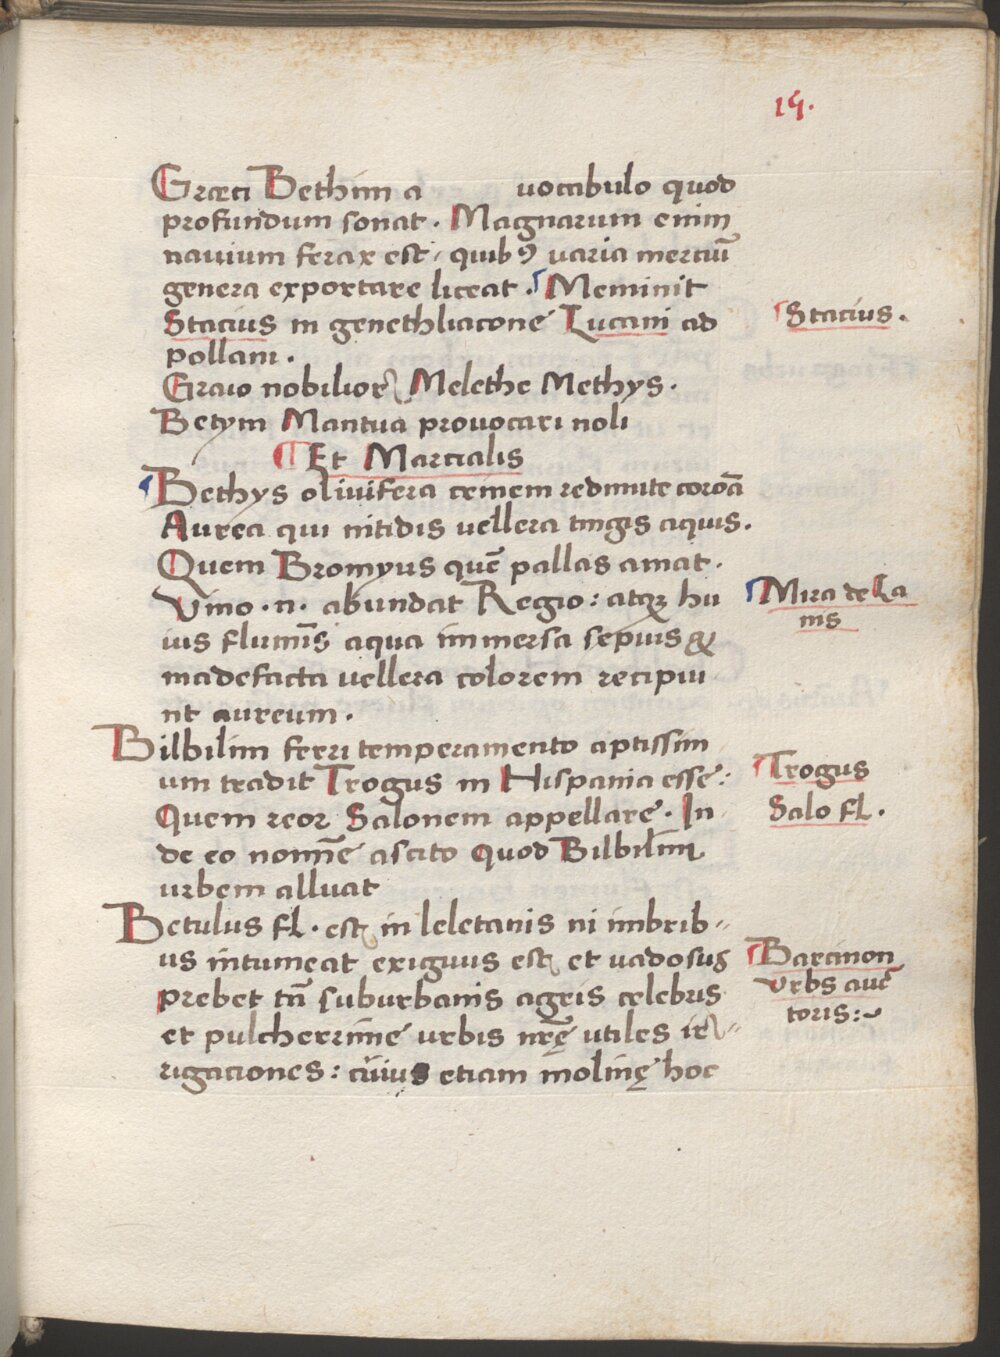 15.
Græci Bethim a vocabulo quod
profundum sonat. Magnarum enim
nauium ferax est, quibꝰ uaria merciū
genera exportare liceat. Meminit
Stacius in genethliacone Lucani ad
Stacius.
pollam.
Graio nobilior Melethe Methys.
Betym Mantua provocari noli
¶ Et Marcialis
Bethys olivifera cemem redimite coroā
Aurea qui nitidis vellera tingis aquis.
Quem Bromyus quē pallas amat.
Vino .n. abundat Regio: atqꝫ hu
Mira de La
nis
ius flumīs aqua immersa sepius &
madefacta vellera colorem recipiu
nt aureum.
Bilbilim ferri temperamento aptissim
um tradit Trogus in Hispania esse:
Trogus
Quem reor Salonem appellare. In
Salo fl.
de eo nomīe ascito quod Bilbilim
urbem alluat
Betulus fl. est in leletanis ni imbrib〃
us intumeat exiguus est et vadosus
Barcinon
Vrbs auc
toris:~
prebet tn̄ suburbanis agris celebris
et pulcherrime urbis nr̄ę utiles ir〃
rigaciones: cuius etiam molinę hoc